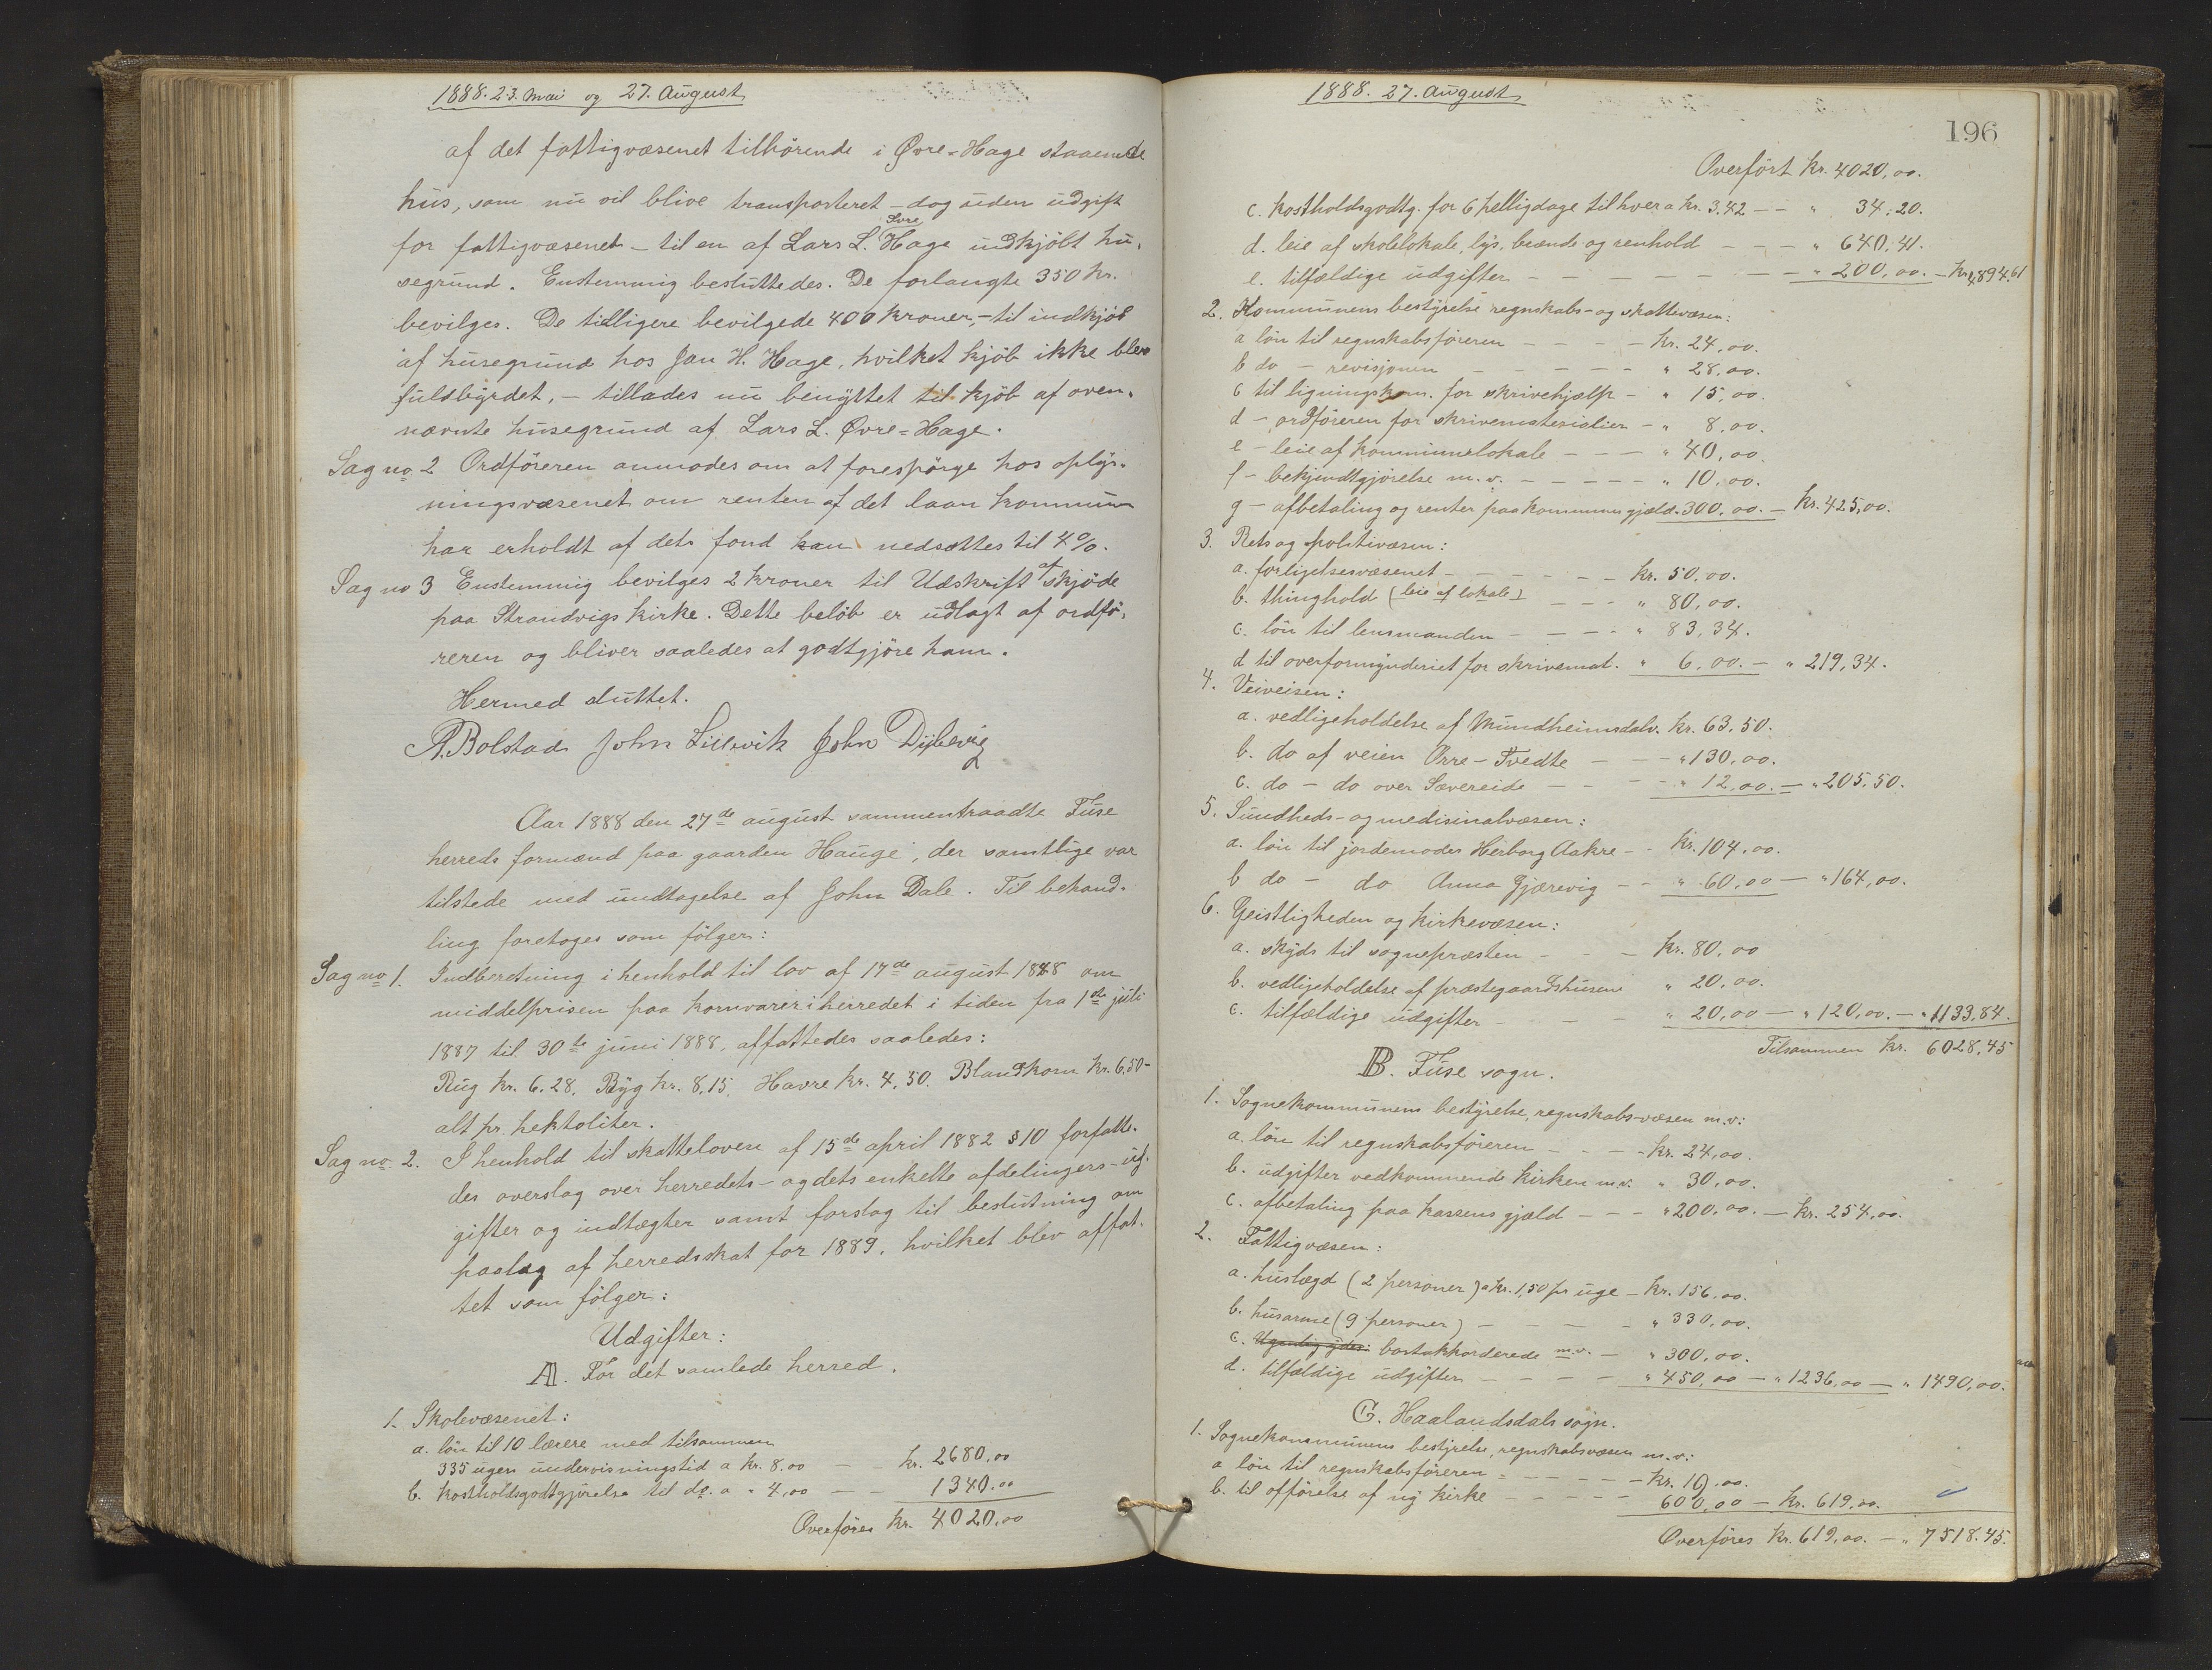 1888. 23. mai og 27. August
af det fattigvæsenet tilhörende i Øvre-Hage staaende
hus, som nu vil blive transporteret - dog uden udgift
for fattigvæsenet - til en af Lars L. Øvre Hage indkjöbt hu-
segrund. Enstemmig besluttedes. De forlangte 350 kr.
bevilges. De tidligere bevilgede 400 kroner, - til indkjöb
af husegrund hos Jan H. Hage, hvilket kjöb ikke blev
fuldbyrdet, - tillades nu benyttet til kjöb af oven-
nævnte husegrund af Lars L. Øvre=Hage.
Sag no 2 Ordföreren anmodes om at forespörge hos oplys-
ningsvæsenet om renten af det laan kommunen
har erholdt af dets fond kan nedsættes til 4%.
Sag no 3 Enstemmig bevilges 2 kroner til Udskrift af skjöde
paa Strandvigs kirke. Dette belöb er udlagt af ordfö-
reren og bliver saaledes at godtgjöre ham.
Hermed sluttet.
A. Bolstad John Lillevik John Dybevig
Aar 1888 den 27de august sammentraadte Fuse
herreds formænd paa gaarden Hauge, der samtlige var
tilstede med undtagelse af John Dale. Til behand-
ling foretoges som fölger:
Sag no 1. Indberetning i henhold til lov af 17de august 1848 om
middelprisen paa kornvarer i herredet i tiden fra 1ste juli
1887 til 30te juni 1888, affattedes saaledes:
Rug kr. 6.28. Byg kr. 8.15. Havre kr. 4.50. Blandkorn kr. 6.50-
alt pr. hektoliter.
Sag no. 2. I henhold til skatteloven af 15de april 1882 § 10 forfatte-
des overslag over herredets- og dets enkelte afdelingers-ud-
gifter og indtægter samt forslag til beslutning om
paalæg af herredsskat for 1889, hvilket blev affat-
tet som fölger:
Udgifter:
A. For det samlede herred.
1. Skolevæsenet:
a. lön til 10 lærere med tilsammen
335 ugers undervisningstid a kr. 8.00 - - kr. 2680.00
b. kostholdsgodtgjörelse til do. a " 4,00 - - 1340.00
Overföres kr. 4020.00
1888. 27. August
196
Overfört kr. 4020,00.
c. kostholdsgodtg. for 6 helligdage til hver a kr. 3.42 - - " 34,20.
d. leie af skolelokale, lys, brænde og renhold - - - " 640,41.
e. tilfældige udgifter - - - - - - - " 200,00. - kr. 4894.61
2. Kommunens bestyrelse regnskabs- og skattevæsen:
a lön til regnskabsföreren - - - - kr. 24,00.
b do - revisjonen - - - - - " 28,00.
c til ligningskom. for skrivehjælp - " 15,00.
d - ordföreren for skrivematerialier - " 8,00.
e - leie af kommunelokale - - - " 40,00.
f - bekjendtgjörelse m.v. - - - - - " 10,00.
g - afbetaling og renter paa kommunens gjæld. 300,00. - kr. 425,00.
3. Rets og politivæsen:
a. forligelsesvæsenet - - - - - - kr. 50,00.
b. thinghold (leie af lokale) - - - " 80,00.
c. lön til lensmanden - - - - " 83,34.
d til overformynderiet for skrivemat. " 6,00. - " 219,34.
4. Veiveisen:
a. vedligeholdelse af Mundheimsdalv. kr. 63.50.
b. do af veien Orre - Tvedte - - - " 130,00.
c. do - do over Sævereide - - - " 12,00. - " 205,50.
5. Sundheds- og medisinalvæsen:
a. lön til jordemoder Herborg Aakre - - kr. 104,00.
b do - do Anna Gjærevig - - " 60,00 - " 164,00.
6. Geistligheden og kirkevæsen:
a. skyds til sognepræsten - - - kr. 80,00
b. vedligeholdelse af præstegaardshusene " 20,00.
c. tilfældige udgifter - - - " 20,00 - " 120,00. - " 1133,84.
Tilsammen kr. 6028,45
B. Fuse sogn.
1. Sognekommunens bestyrelse, regnskabs-væsen m.v:
a. lön til regnskabsföreren - - - - kr. 24,00.
b. udgifter vedkommende kirken m.v. " 30,00.
c. afbetaling paa kassens gjæld - - - " 200,00. - kr. 254,00.
2. Fattigvæsen:
a. huslægd (2 personer) a kr. 1,50 pr uge - kr. 156,00.
b. husarme (9 personer) - - - - - " 330,00.
c. bortakkorderede m.v. - " 300,00.
d. tilfældige udgifter - - - - " 450,00 - " 1236,00 - " 1490,00.
C. Haalandsdals sogn.
1. Sognekommunens bestyrelse, regnskabsvæsen m.v.:
a lön til regnskabsföreren - - - - - kr. 19,00.
b. til opförelse af ny kirke - - - - - 600,00 - kr. 619,00.
Overföres kr. 619,00. - " 7518.45.